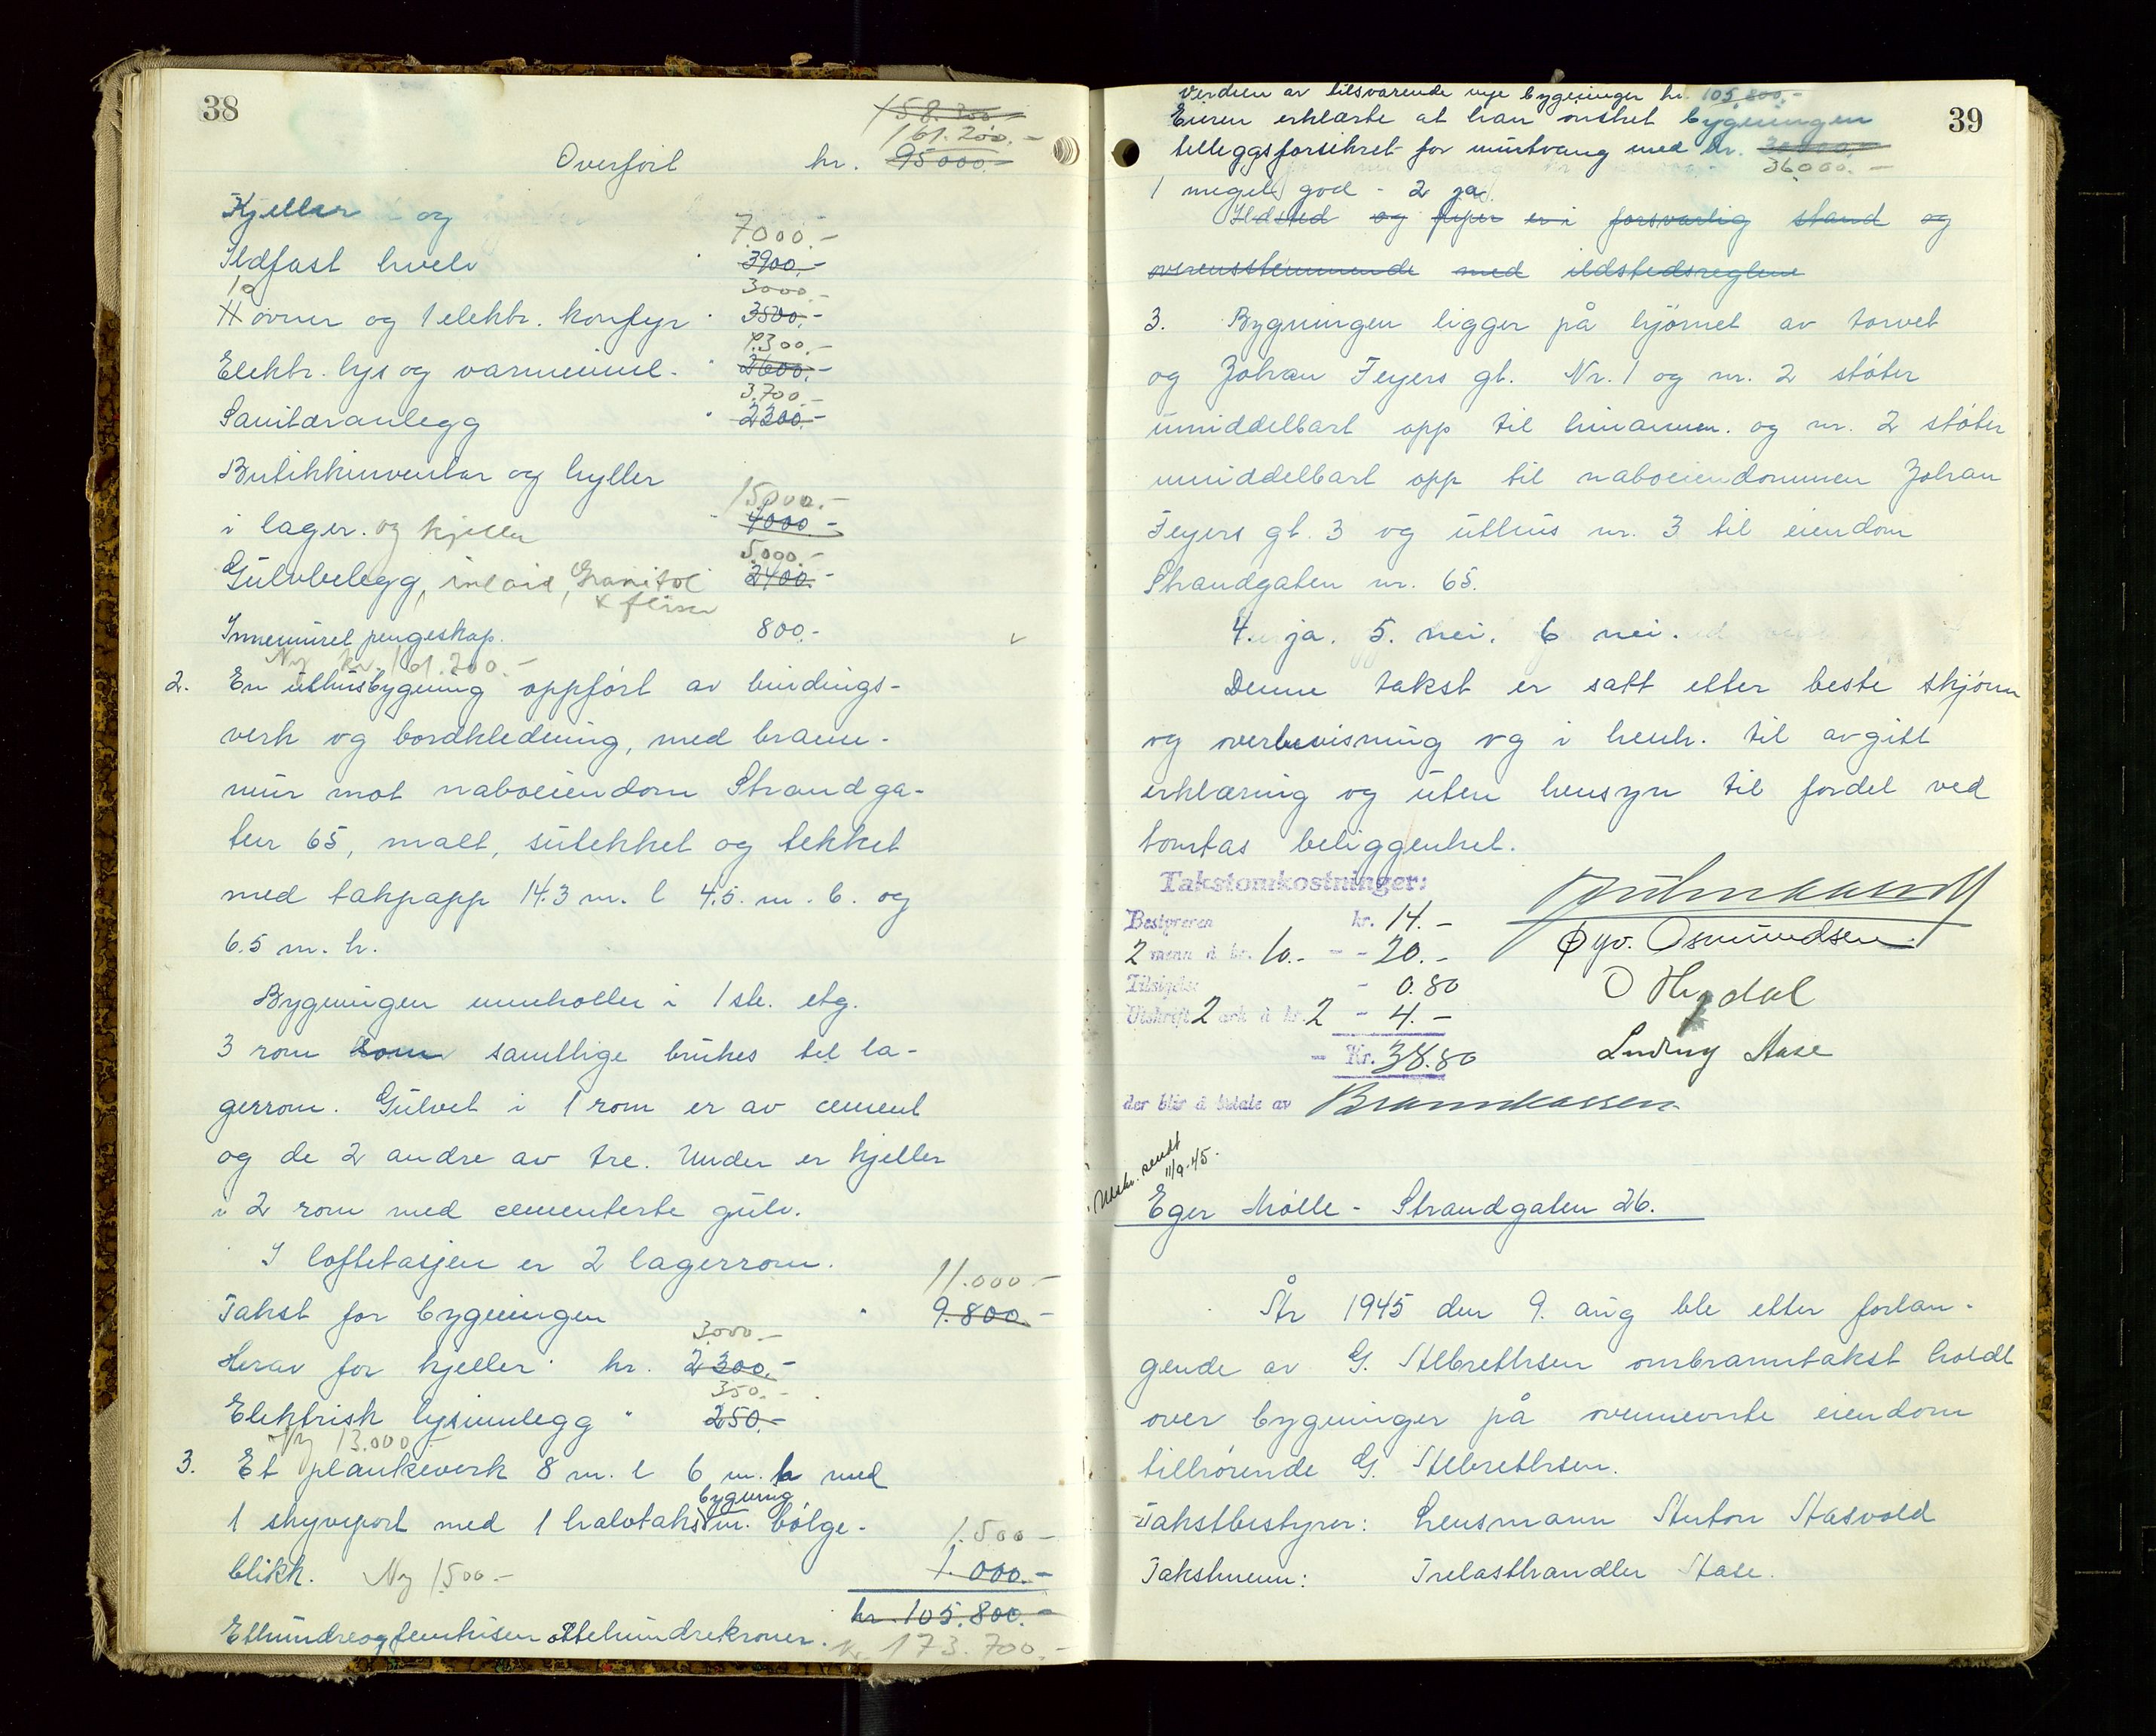 38
158.300
161.200.-
Overført kr. 95000.-
Kjeller og
7.000.-
Ildfast hvelv " 3900.-
10 3000.-
11 ovner og 1 elektr. komfyr " 3500.-
4.300.-
Elektr. lys og varmeinnl. " 2600.-
3.700.-
Sanitæranlegg " 2300.-
Butikkinventar og hyller
15.000.-
i lager. og kjeller " 4000.-
5.000.-
Gulvbelegg, inlaid, Granitol 2400.-
+ fliser
Innemuret pengeskap. 800.-
Ny kr. 161.200.-
2. En uthusbygning oppført av bindings-
verk og bordkledning, med brann-
mur mot naboeiendom Strandga-
ten 65, malt, sutekket og tekket
med takpapp 14.3 m. l 4.5. m. b. og
6.5 m. h.
Bygningen inneholder i 1ste. etg.
3 rom som samtlige brukes til la-
gerrom. Gulvet i 1 rom er av cement
og de 2 andre av tre. Under er kjeller
i 2 rom med cementerte gulv.
I loftetasjen er 2 lagerrom.
11.000.-
Takst for bygningen " 9.800.-
3.000.-
Herav for kjeller kr. 2300.-
350.-
Elektrisk lysinnlegg " 250.-
Ny 13.000.-
3. Et plankeverk 8 m. l 6 m. b med
bygning
1 skyveport med 1 halvtaks m. bølge-
1.500.-
blikk. Ny 1500.- 1.000.-
kr. 105.800.-
Etthundreogfemtusen åttehundrekroner.
kr. 173.700.-
39
Verdien av tilsvarende nye bygninger kr. 105.800.-
Eieren erklærte at han ønsket bygningen
tilleggsforsikret for murtvang med kr. 30.000.-
36.000.-
1 meget god - 2 ja.
Ildsted og piper er i forsvarlig stand og
overensstemmende med ildstedsreglene
3. Bygningen ligger på hjørnet av torvet
og Johan Feyers gt. Nr. 1 og nr. 2 støter
umiddelbart opp til hinannen. og nr. 2 støter
umiddelbart opp til naboeiendommen Johan
Feyers gt. 3 og uthus nr. 3 til eiendom
Strandgaten nr. 65.
4. ja. 5. nei. 6 nei.
Denne takst er satt etter beste skjønn
og overbevisning og i henh. til avgitt
erklæring og uten hensyn til fordel ved
tomtas beliggenhet.
Takstomkostninger:
Bestyreren kr. 14.-
2 menn à kr. 10.- - - 20.-
Øyv. Osmundsen.
Tilsigelse - 0.80
O Hydal
Utskrift 2 ark à kr. 2 - 4.-
- Kr. 38.80
Ludvig Aase
der blir å betale av Brannkassen
Utskr. sendt
11/9-45.
Eger Mølle - Strandgaten 26.
År 1945 den 9. aug ble etter forlan-
gende av G. Albrethsen ombranntakst holdt
over bygninger på ovennevnte eiendom
tilhørende G. Albrethsen.
Takstbestyrer: Lensmann Anton Aasvold
Takstmenn: Trelasthandler Aase.